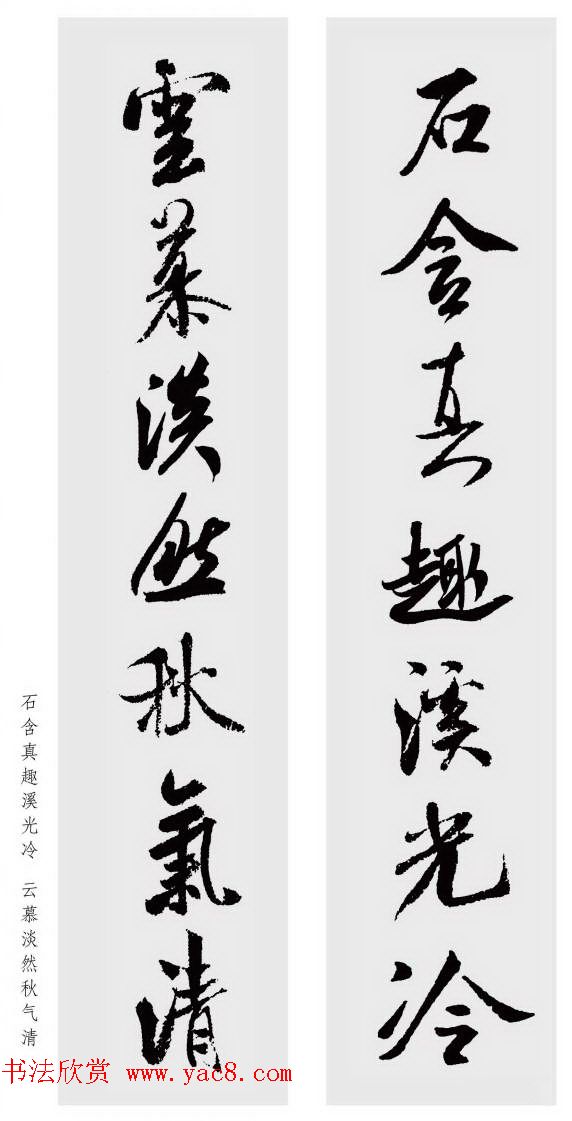 石含真趣溪光冷
雲慕淡然秋氣清
石含真趣溪光冷 云慕淡然秋气清
书法欣赏 www.yac8.com